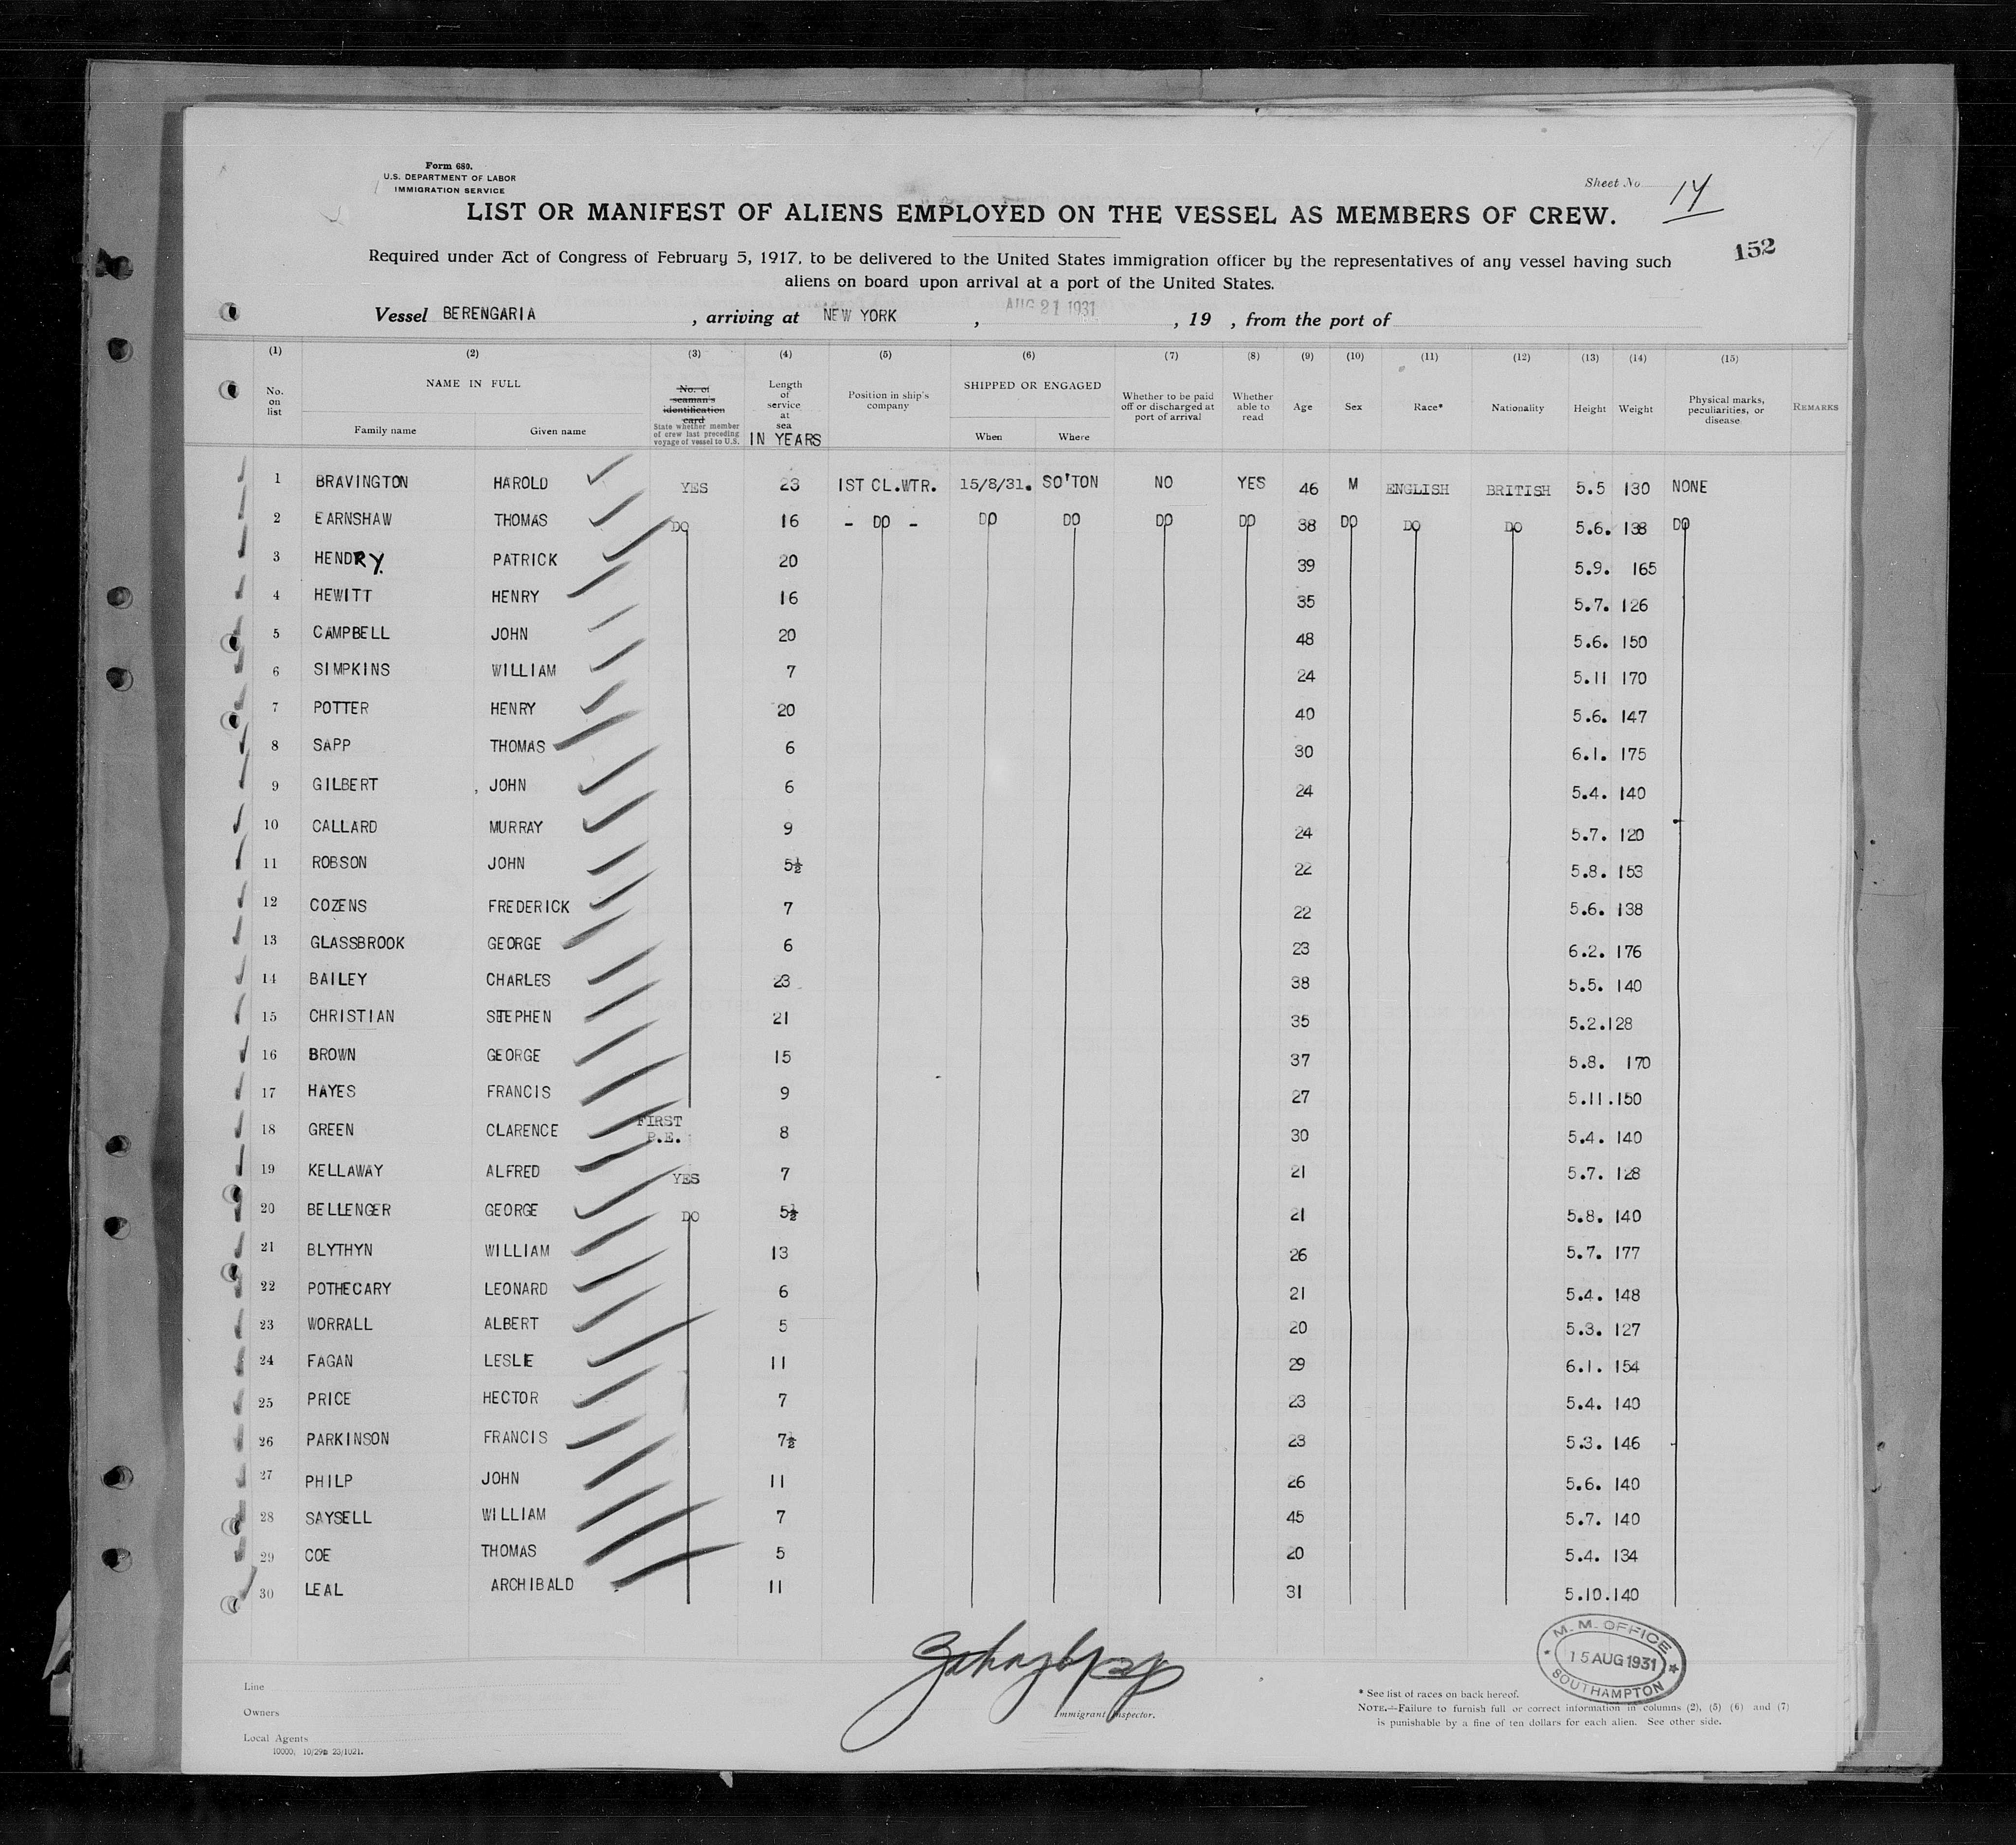 Form 680.
U.S. DEPARTMENT OF LABOR
IMMIGRATION SERVICE
Sheet No 14
LIST OR MANIFEST OF ALIENS EMPLOYED ON THE VESSEL AS MEMBERS OF CREW.
152
Required under Act of Congress of February 5, 1917, to be delivered to the United States immigration officer by the representatives of any vessel having such
aliens on board upon arrival at a port of the United States.
Vessel BERENGARIA , arriving at NEW YORK , AUG 21 1931 , 19 , from the port of
(1) (2) (3) (4) (5) (6) (7) (8) (9) (10) (11) (12) (13) (14) (15)
No. on list
NAME IN FULL
Family name Given name
No. of seaman's identification card
State whether member of crew last preceding voyage of vessel to U.S.
Length of service at sea
IN YEARS
Position in ship's company
SHIPPED OR ENGAGED
When Where
Whether to be paid off or discharged at port of arrival
Whether able to read
Age Sex Race* Nationality Height Weight
Physical marks, peculiarities, or disease
REMARKS
1 BRAVINGTON HAROLD YES 23 1ST CL.WTR. 15/8/31. SO'TON NO YES 46 M ENGLISH BRITISH 5.5 130 NONE
2 EARNSHAW THOMAS DO 16 - DO - DO DO DO DO 38 DO DO DO 5.6. 138 DO
3 HENDRY. PATRICK 20 39 5.9. 165
4 HEWITT HENRY 16 35 5.7. 126
5 CAMPBELL JOHN 20 48 5.6. 150
6 SIMPKINS WILLIAM 7 24 5.11 170
7 POTTER HENRY 20 40 5.6. 147
8 SAPP THOMAS 6 30 6.1. 175
9 GILBERT JOHN 6 24 5.4. 140
10 CALLARD MURRAY 9 24 5.7. 120
11 ROBSON JOHN 5½ 22 5.8. 153
12 COZENS FREDERICK 7 22 5.6. 138
13 GLASSBROOK GEORGE 6 23 6.2. 176
14 BAILEY CHARLES 23 38 5.5. 140
15 CHRISTIAN STEPHEN 21 35 5.2.128
16 BROWN GEORGE 15 37 5.8. 170
17 HAYES FRANCIS 9 27 5.11.150
18 GREEN CLARENCE FIRST B.E. 8 30 5.4. 140
19 KELLAWAY ALFRED YES 7 21 5.7. 128
20 BELLENGER GEORGE DO 5½ 21 5.8. 140
21 BLYTHYN WILLIAM 13 26 5.7. 177
22 POTHECARY LEONARD 6 21 5.4. 148
23 WORRALL ALBERT 5 20 5.3. 127
24 FAGAN LESLIE 11 29 6.1. 154
25 PRICE HECTOR 7 23 5.4. 140
26 PARKINSON FRANCIS 7½ 23 5.3. 146
27 PHILP JOHN 11 26 5.6. 140
28 SAYSELL WILLIAM 7 45 5.7. 140
29 COE THOMAS 5 20 5.4. 134
30 LEAL ARCHIBALD 11 31 5.10.140
M. M. OFFICE
15 AUG 1931
SOUTHAMPTON
Line
Owners
Local Agents
10000, 10/29 23/1021.
Immigrant Inspector.
* See list of races on back hereof.
NOTE.—Failure to furnish full or correct information in columns (2), (5) (6) and (7)
is punishable by a fine of ten dollars for each alien. See other side.